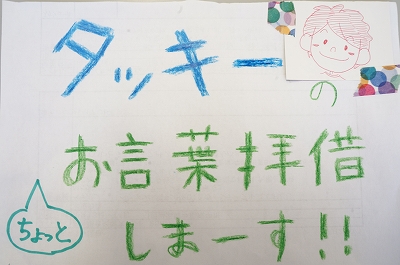 タッキー
の
お言葉拝借
ちょっと
しまーす!!